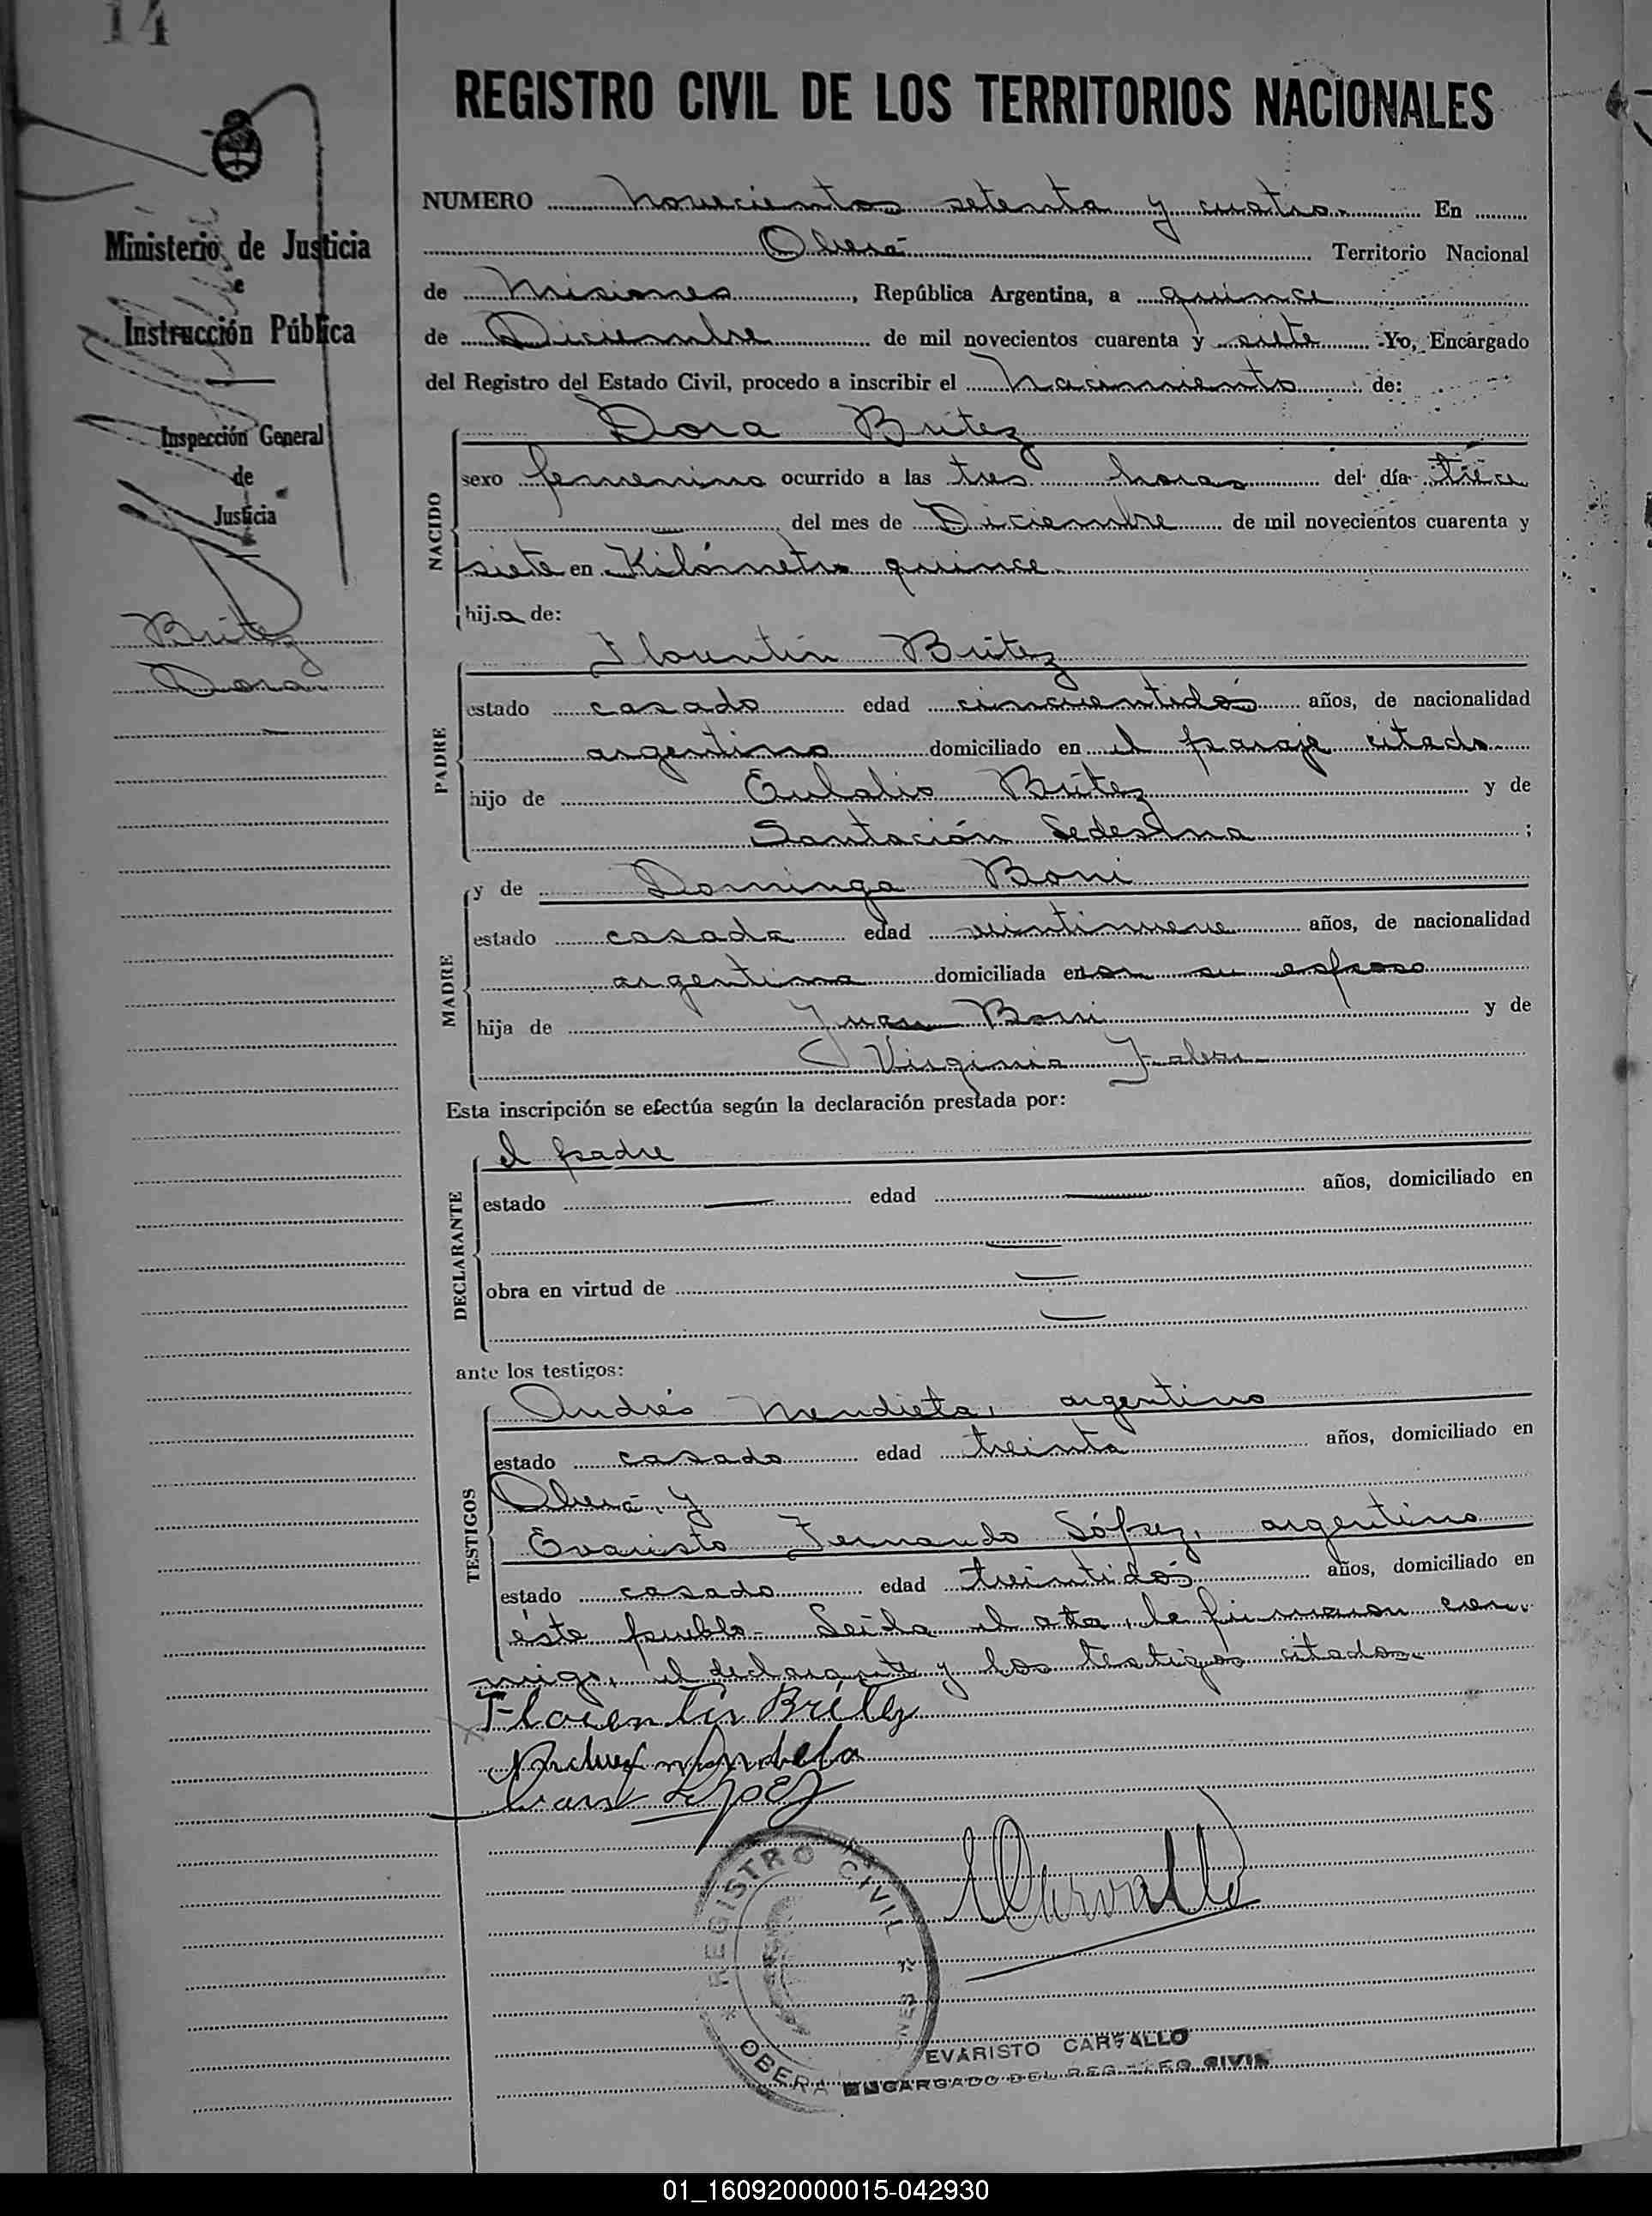 14
REGISTRO CIVIL DE LOS TERRITORIOS NACIONALES
Ministerio de Justicia
e
Instrucción Pública
Inspección General
de
Justicia
Britez
Dora
NUMERO novecientos setenta y cuatro En
Oberá Territorio Nacional
de Misiones, República Argentina, a quince
de Diciembre de mil novecientos cuarenta y siete Yo, Encargado
del Registro del Estado Civil, procedo a inscribir el nacimiento de:
NACIDO
Dora Britez
sexo femenino ocurrido a las tres horas del día trece
del mes de Diciembre de mil novecientos cuarenta y
siete en Kilómetro quince
hija de:
PADRE
Florentín Britez
estado casado edad cincuentidós años, de nacionalidad
argentino domiciliado en el paraje citado
hijo de Eulalio Britez y de
Santación Ledesma ;
MADRE
y de Dominga Boni
estado casada edad veintinueve años, de nacionalidad
argentina domiciliada en con su esposo
hija de Juan Boni y de
Virginia
Esta inscripción se efectúa según la declaración prestada por:
DECLARANTE
el padre
estado — edad — años, domiciliado en
—
obra en virtud de —
—
ante los testigos:
TESTIGOS
Andrés Mendieta, argentino
estado casado edad treinta años, domiciliado en
Oberá, y
Evaristo Fernando López, argentino
estado casado edad treintidós años, domiciliado en
éste pueblo- Leída el acta, la firmaron con-
migo, el declarante y los testigos citados.-
Florentin Britez
López
Carvallo
REGISTRO CIVIL
OBERA
EVARISTO CARVALLO
ENCARGADO DEL REGISTRO CIVIL
01_160920000015-042930